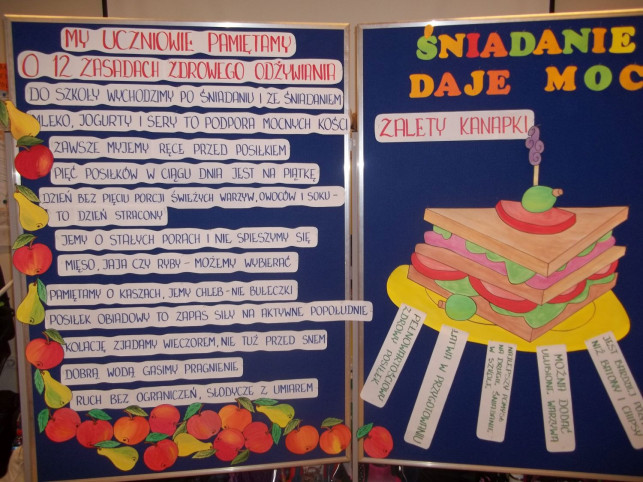 MY UCZNIOWIE PAMIĘTAMY
O 12 ZASADACH ZDROWEGO ODŻYWIANIA
DO SZKOŁY WYCHODZIMY PO ŚNIADANIU I ZE ŚNIADANIEM
MLEKO, JOGURTY I SERY TO PODPORA MOCNYCH KOŚCI
ZAWSZE MYJEMY RĘCE PRZED POSIŁKIEM
PIĘĆ POSIŁKÓW W CIĄGU DNIA JEST NA PIĄTKĘ
DZIEŃ BEZ PIĘCIU PORCJI ŚWIEŻYCH WARZYW, OWOCÓW I SOKU -
TO DZIEŃ STRACONY
JEMY O STAŁYCH PORACH I NIE SPIESZYMY SIĘ
MIĘSO, JAJA CZY RYBY - MOŻEMY WYBIERAĆ
PAMIĘTAMY O KASZACH, JEMY CHLEB - NIE BUŁECZKI
POSIŁEK OBIADOWY TO ZAPAS SIŁY NA AKTYWNE POPOŁUDNIE
KOLACJĘ ZJADAMY WIECZOREM, NIE TUŻ PRZED SNEM
DOBRĄ WODĄ GASIMY PRAGNIENIE
RUCH BEZ OGRANICZEŃ, SŁODYCZE Z UMIAREM
ŚNIADANIE
DAJE MOC
ZALETY KANAPKI
PEŁNOWARTOŚCIOWY
ZDROWY
POSIŁEK
ŁATWA W PRZYGOTOWANIU
NAJLEPSZY POMYSŁ
NA DRUGIE ŚNIADANIE
W SZKOLE
MOŻNA DODAĆ
ULUBIONE WARZYWA
JEST BARDZIEJ
NIŻ BATONY I CHIPSY